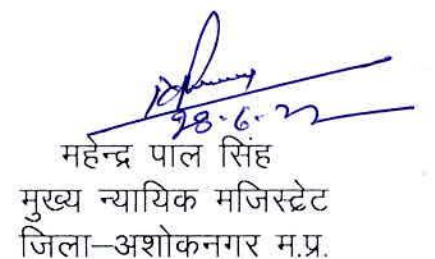 28-6-22
महेन्द्र पाल सिंह
मुख्य न्यायिक मजिस्ट्रेट
जिला–अशोकनगर म.प्र.